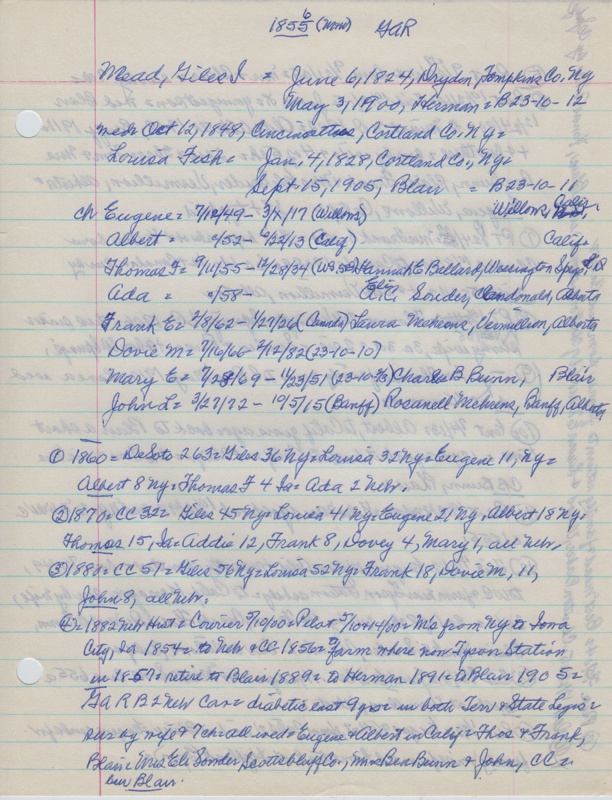 1855 6 (Wood) GAR
Mead, Giles I = June 6, 1824, Dryden, Tompkins Co, Ny
May 3, 1900, Herman = B23-10-12
med Oct 12, 1848, Cincinattus, Cortland Co, Ny =
Louisa Fish = Jan. 4, 1828, Cortland Co, Ny =
Sept 15, 1905, Blair = B23-10-11
ch Eugene = (Willows) Willows, Calif
Albert = /52 - /22/13 (Calif) Calif =
Thomas F = 9/11/55 - 12/28/34 Hannah E Ballard, Wessington Spgs, SD
Ada = /58 - Eli Souder, Alberta
Frank E = 2/8/62 - 1/27/26 (Canada) Laura Mehrens, Vermillion, Alberta
Dovie M = 7/16/66 2/12/82 (23-10-10)
Mary E = /69 - 11/23/51 (23-10-) Charles B Bunn, Blair
John L = 3/27/72 - (Banff) Rosanell Mehrens, Banff, Alberta
① 1860 = DeSoto 263 = Giles 36 Ny = Louisa 32 Ny = Eugene 11, Ny =
Albert 8 Ny = Thomas F 4 Ia = Ada 2 Nebr.
② 1870 = CC 322 = Giles 45 Ny = Louisa 41 Ny = Eugene 21 Ny, Albert 18 Ny,
Thomas 15, Ia = Addie 12, Frank 8, Dovey 4, Mary 1, all Nebr.
③ 1880 = CC 51 = Giles 56 Ny = Louisa 52 Ny = Frank 18, Dovie M, 11,
John 8, all Nebr.
④ = 1882 Nebr Hist = Courier 5/10/00 = Pilot 5/10+14/00 = Mo from Ny to Iowa
City, Ia 1854 = to Nebr & CC 1856 = to farm where now Tyson Station
in 1857 = retire to Blair 1889 = to Herman 1891 = to Blair 1905 =
GaR B 2 Nebr Cav = diabetic last 9 yrs = in both Terr & State Legis =
sur by wife & 7 ch = all wed = Eugene & Albert in Calif = Thos & Frank,
Blair = Mrs Eli Souder, Scottsbluff Co, Mrs Ben Bunn & John, CC =
bur Blair.